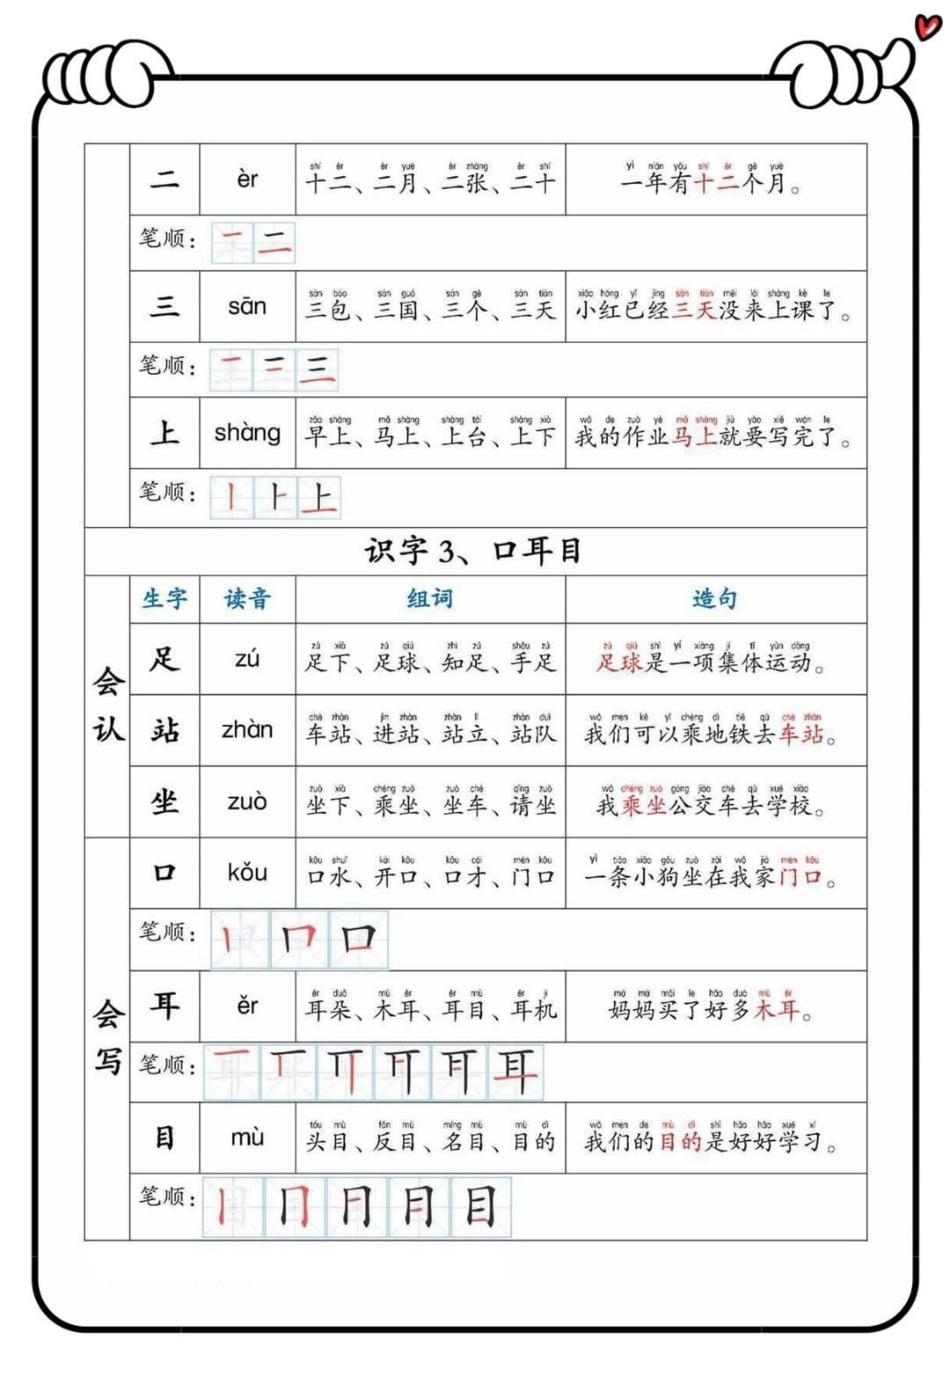 二 èr 十二、二月、二张、二十 一年有十二个月。
shí èr èr yuè èr zhāng èr shí yì nián yǒu shí èr gè yuè
笔顺：
三 sān 三包、三国、三个、三天 小红已经三天没来上课了。
sān bāo sān guó sān gè sān tiān xiǎo hóng yǐ jīng sān tiān méi lái shàng kè le
笔顺：
上 shàng 早上、马上、上台、上下 我的作业马上就要写完了。
zǎo shàng mǎ shàng shàng tái shàng xià wǒ de zuò yè mǎ shàng jiù yào xiě wán le
笔顺：
识字 3、口耳目
生字 读音 组词 造句
会认
足 zú 足下、足球、知足、手足 足球是一项集体运动。
zú xià zú qiú zhī zú shǒu zú zú qiú shì yí xiàng jí tǐ yùn dòng
站 zhàn 车站、进站、站立、站队 我们可以乘地铁去车站。
chē zhàn jìn zhàn zhàn lì zhàn duì wǒ men kě yǐ chéng dì tiě qù chē zhàn
坐 zuò 坐下、乘坐、坐车、请坐 我乘坐公交车去学校。
zuò xià chéng zuò zuò chē qǐng zuò wǒ chéng zuò gōng jiāo chē qù xué xiào
会写
口 kǒu 口水、开口、口才、门口 一条小狗坐在我家门口。
kǒu shuǐ kāi kǒu kǒu cái mén kǒu yì tiáo xiǎo gǒu zuò zài wǒ jiā mén kǒu
笔顺：
耳 ěr 耳朵、木耳、耳目、耳机 妈妈买了好多木耳。
ěr duǒ mù ěr ěr mù ěr jī mā ma mǎi le hǎo duō mù ěr
笔顺：
目 mù 头目、反目、名目、目的 我们的目的是好好学习。
tóu mù fǎn mù míng mù mù dì wǒ men de mù dì shì hǎo hǎo xué xí
笔顺：